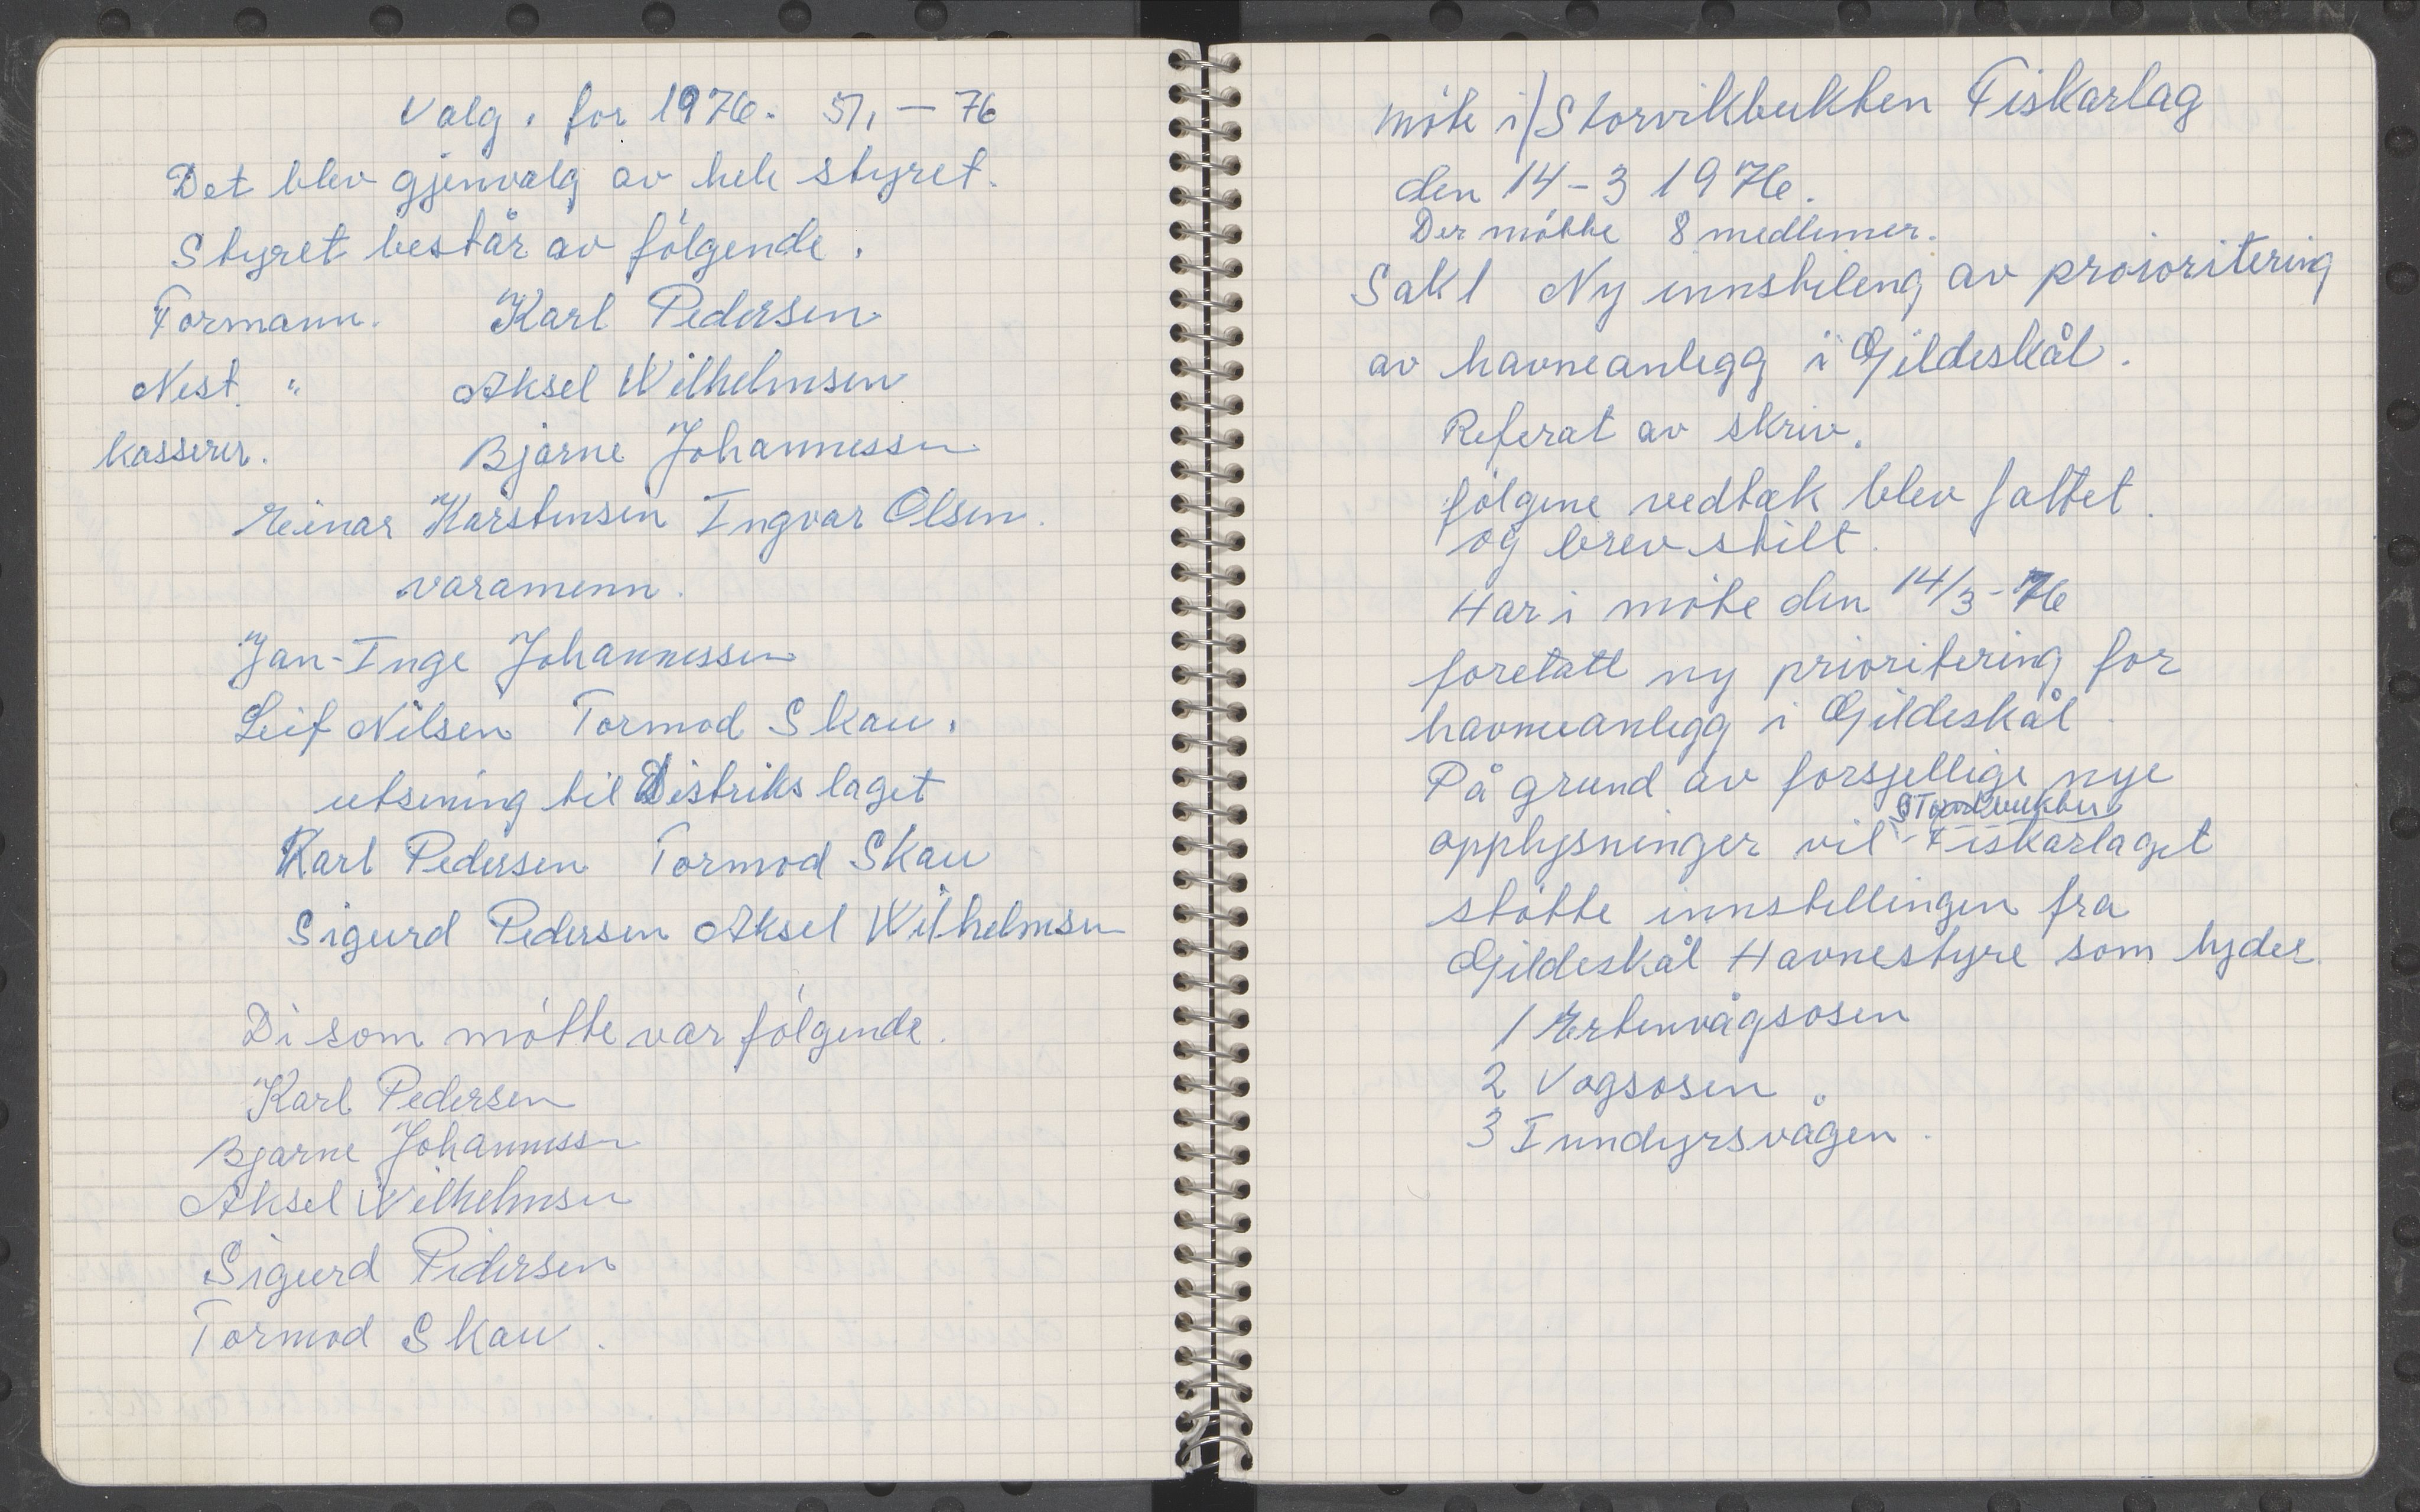 Valg. for 1976. 5/1 - 76
Det blev gjenvalg av hele styret.
Styret består av fólgende.
Formann. Karl Pedersen.
Nest. " Aksel Wilhelmsen
kasserer. Bjarne Johannessen
Einar Karstensen Ingvar Olsen.
varamenn.
Jan-Inge Johannessen
Leif Nilsen Tormod Skau.
utsening til Distriks laget
Karl Pedersen Tormod Skau
Sigurd Pedersen Aksel Wilhelmsen
Di som mótte var fólgende.
Karl Pedersen
Bjarne Johannessen
Aksel Wilhelmsen
Sigurd Pedersen
Tormod Skau.
móte i/Storvikbukten Fiskarlag
den 14-3 1976.
Der mótte 8 medlemer.
Sak 1 Ny innstileng av proioritering
av havneanlegg i Gildeskål.
Referat av skriv.
fólgene vedtak blev fattet.
og brev stilt.
Har i móte den 14/3-76
foretatt ny prioritering for
havneanlegg i Gildeskål
På grund av forsjellige nye
opplysninger vil Fiskarlaget
stótte innstellingen fra
Gildeskål Havnestyre som lyder
1 Ertenvågsosen
2 Vogsosen.
3 Inndyrsvågen.